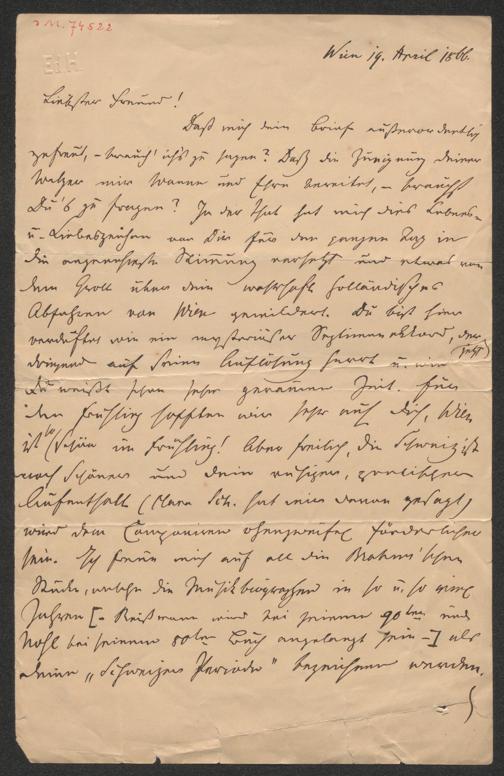 Wien 19. April 1866.
Liebster Freund!
Daß mich dein Brief außerordentlich
gefreut, – brauch' ich's zu sagen? Daß die Zueignung deiner
Walzer mir Wonne und Ehre bereitet, – brauchst
Du's zu fragen? In der That hat mich dies Lebens-
u. Liebeszeichen von Dir für den ganzen Tag in
die angenehmste Stimmung versetzt und etwas von
dem Groll über dein wahrhaft holländisches
Abfahren von Wien gemildert. Du bist hier
verduftet wie ein mysteriöser Septimenakkord, der
dringend auf seine Auflösung harrt u. wie
Du weißt schon sehr geraumer Zeit. Für
den Frühling hofften wir sehr auf dich, Wien
ist so schön im Frühling! Aber freilich, die Schweiz ist
noch schöner und dein ruhiger, gemüthlicher
Aufenthalt (Clara Sch. hat mir davon gesagt)
wird dem Componiren ohnezweifel förderlicher
sein. Ich freue mich auf all die Brahms'schen
Stücke, welche die Musikbiographen in so u. so viel
Jahren [– Reißmann wird bei seinem 90ten und
Nohl bei seinem 80ten Buch angelangt sein –] als
deine „Schweizer Periode" bezeichnen werden.